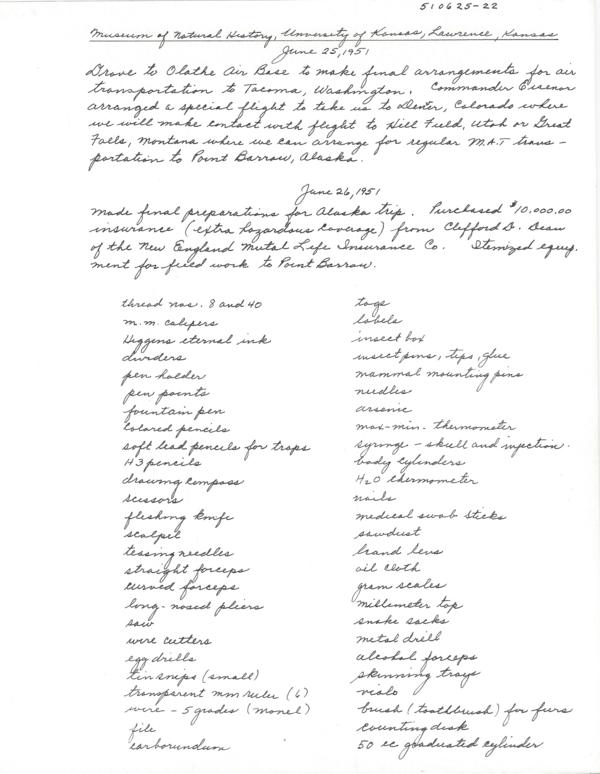 510625-22
Museum of Natural History, University of Kansas, Lawrence, Kansas
June 25, 1951
Drove to Olathe Air Base to make final arrangements for air
transportation to Tacoma, Washington. Commander
arranged a special flight to take us to Denver, Colorado where
we will make contact with flight to Hill Field, Utah or Great
Falls, Montana where we can arrange for regular M.A.T trans-
portation to Point Barrow, Alaska.
June 26, 1951
Made final preparations for Alaska trip. Purchased $10,000.00
insurance (extra hazardous coverage) from Clifford D.
of the New England Mutal Life Insurance Co. Itemized equip-
ment for field work to Point Barrow.
thread nos. 8 and 40
m.m. calipers
Higgens eternal ink
dividers
pen holder
pen points
fountain pen
colored pencils
soft lead pencils for traps
H3 pencils
drawing compass
scissors
fleshing knife
scalpel
teasing needles
straight forceps
curved forceps
long-nosed pliers
saw
wire cutters
egg drills
tin snips (small)
transparent mm ruler (6)
wire - 5 grades (monel)
file
carborundum
tags
labels
insect box
insect pins, tips, glue
mammal mounting pins
needles
arsenic
max-min. thermometer
syringe - skull and injection.
body cylinders
H2O thermometer
nails
medical swab sticks
sawdust
hand lens
oil cloth
gram scales
millimeter tap
snake sacks
metal drill
alcohol forceps
skinning trays
vials
brush (toothbrush) for furs
counting disk
50 cc graduated cylinder